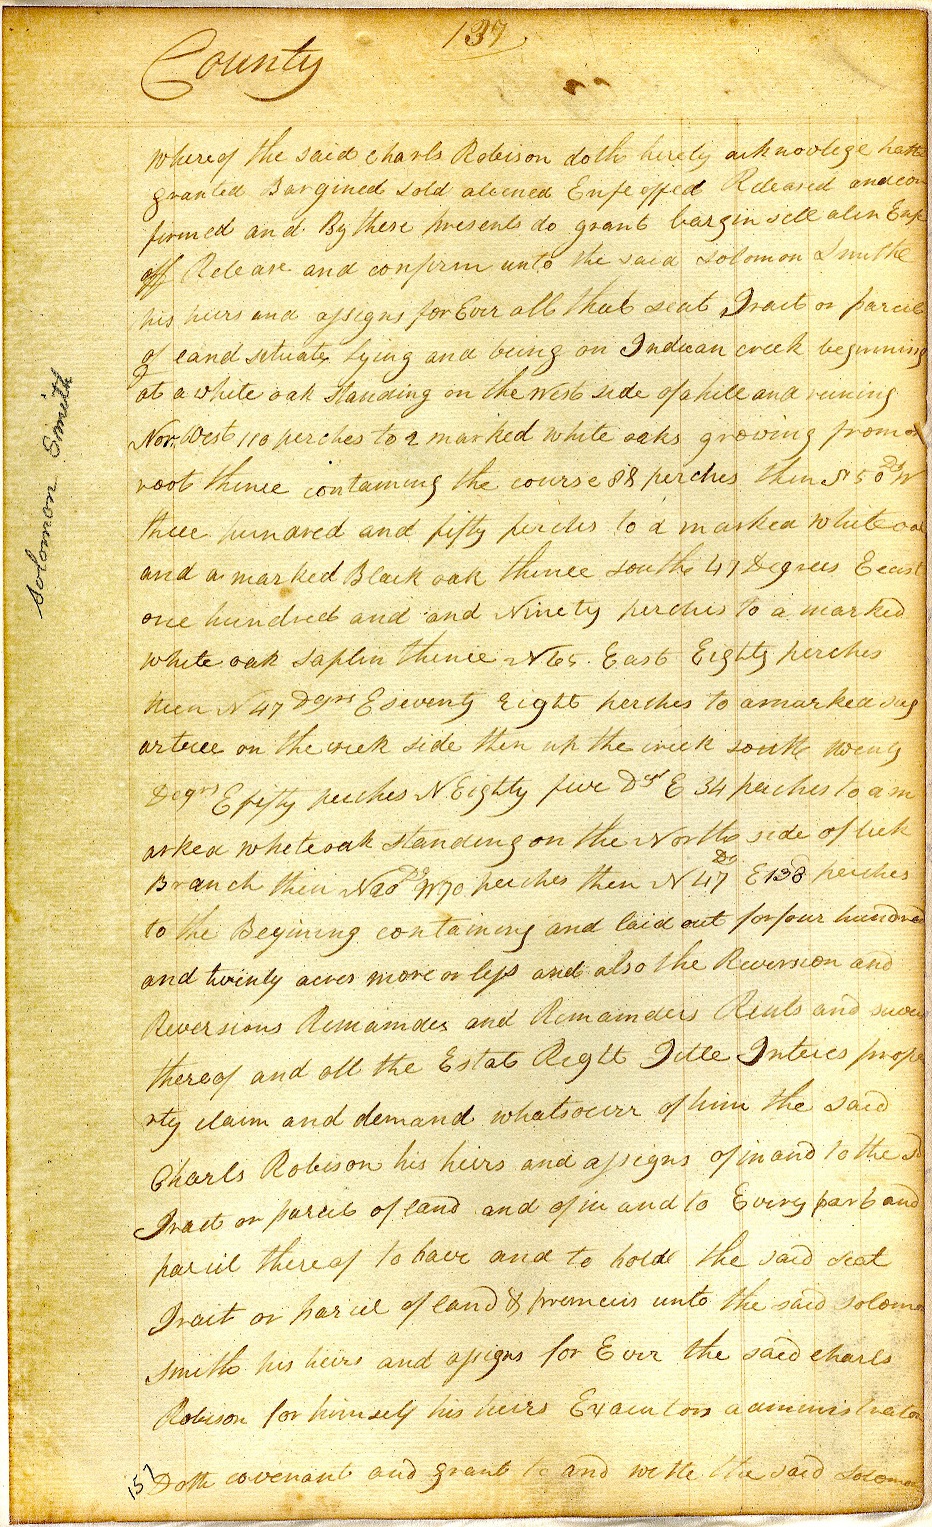 137
County
Whereof the said Charls Robison doth hereby acknovlege hath
granted Bargined sold aliened Enfeoffed Released and con
firmed and By these presents do grant bargin sell alien Enfe
off Release and confirm unto the said Solomon Smithe
his heirs and assigns for Ever all that seat Tract or parcel
of land setuate lying and being on Indiean creek beginning
at a white oak standing on the West side of a hill and runing
Nor. West 110 perches to 2 marked white oaks growing from a
root thence containing the course 88 perches then S 50 Ds W
three hundred and fifty perches to a marked white oak
and a marked Black oak thence south 47 Degrees Eeast
one hundred and and Ninety perches to a marked
white oak saplin thence N 65. East Eighty perches
then N 47 Dgrs E seventy eight perches to a marked sug
artree on the creek side then up the creek south twenty
Degrs E fifty perches N Eighty five Dgs E 34 perches to a m
arked white oak standing on the North side of lick
Branch then N 20 Ds W 70 perches then N 47 Ds E 138 perches
to the Begining containing and laid out for four hundred
and twinty acres more or less and also the Reversion and
Reversions Remainder and Remainders Rents and
thereof and all the Estate Right Title Interes prope
rty claim and demand whatsoever of him the said
Charls Robison his heirs and assigns of in and to the sd
Tract or parcel of land and of in and to Every part and
parcil thereof to have and to hold the said seat
Tract or parcel of land & premeis unto the said Solomon
Smith his heirs and assigns for Ever the said Charls
Robison for himself his heirs Executors administrators
Doth covenant and grant to and with the said Solomon
157
Solomon Smith